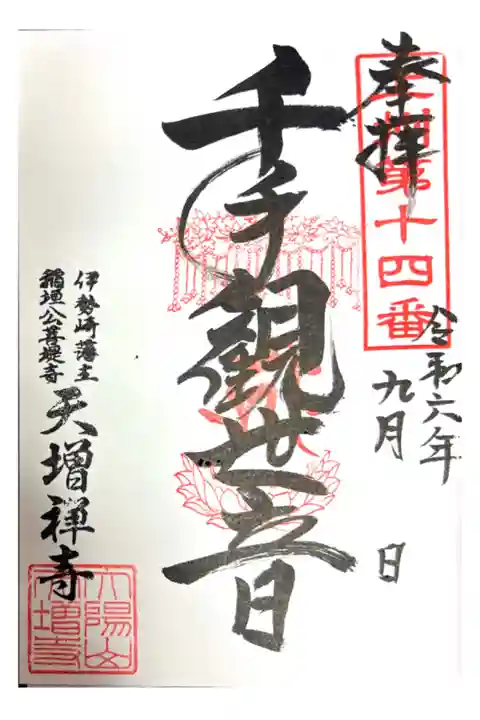 奉拝
上州第十四番
令和六年
九月 日
千手観世音
伊勢崎藩主
稲垣公菩提寺
天増祥寺